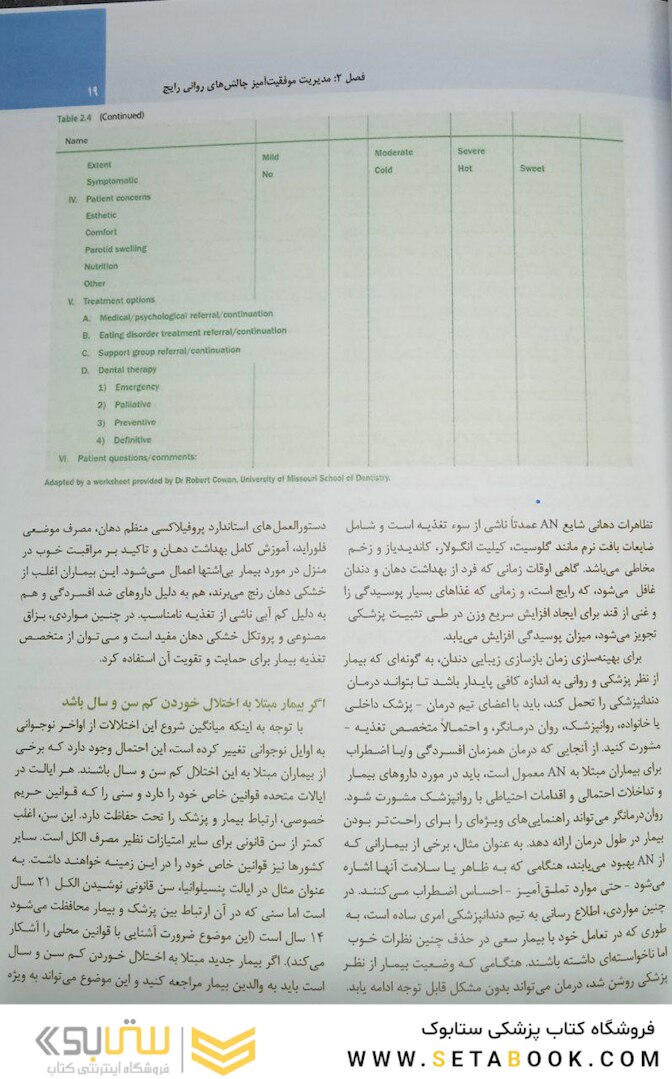 فصل ۲: مدیریت موفقیت‌آمیز چالش‌های روانی رایج
۱۹
Table 2.4 (Continued)
Name
Extent Mild Moderate Severe
Symptomatic No Cold Hot Sweet
IV. Patient concerns
Esthetic
Comfort
Parotid swelling
Nutrition
Other
V. Treatment options
A. Medical/psychological referral/continuation
B. Eating disorder treatment referral/continuation
C. Support group referral/continuation
D. Dental therapy
1) Emergency
2) Palliative
3) Preventive
4) Definitive
VI. Patient questions/comments:
Adapted by a worksheet provided by Dr Robert Cowan, University of Missouri School of Dentistry.
تظاهرات دهانی شایع AN عمدتاً ناشی از سوء تغذیه است و شامل
ضایعات بافت نرم مانند گلوسیت، کیلیت انگولار، کاندیدیاز و زخم
مخاطی می‌باشد. گاهی اوقات زمانی که فرد از بهداشت دهان و دندان
غافل می‌شود، که رایج است، و زمانی که غذاهای بسیار پوسیدگی زا
و غنی از قند برای ایجاد افزایش سریع وزن در طی تثبیت پزشکی
تجویز می‌شود، میزان پوسیدگی افزایش می‌یابد.
برای بهینه‌سازی زمان بازسازی زیبایی دندان، به گونه‌ای که بیمار
از نظر پزشکی و روانی به اندازه کافی پایدار باشد تا بتواند درمان
دندانپزشکی را تحمل کند، باید با اعضای تیم درمان - پزشک داخلی
یا خانواده، روانپزشک، روان درمانگر، و احتمالاً متخصص تغذیه -
مشورت کنید. از آنجایی که درمان همزمان افسردگی و/یا اضطراب
برای بیماران مبتلا به AN معمول است، باید در مورد داروهای بیمار
و تداخلات احتمالی و اقدامات احتیاطی با روانپزشک مشورت شود.
روان‌درمانگر می‌تواند راهنمایی‌های ویژه‌ای را برای راحت‌تر بودن
بیمار در طول درمان ارائه دهد. به عنوان مثال، برخی از بیمارانی که
از AN بهبود می‌یابند، هنگامی که به ظاهر یا سلامت آنها اشاره
می‌شود - حتی موارد تملق‌آمیز - احساس اضطراب می‌کنند. در
چنین مواردی، اطلاع رسانی به تیم دندانپزشکی امری ساده است، به
طوری که در تعامل خود با بیمار سعی در حذف چنین نظرات خوب
اما ناخواسته‌ای داشته باشند. هنگامی که وضعیت بیمار از نظر
پزشکی روشن شد، درمان می‌تواند بدون مشکل قابل توجه ادامه یابد.
دستورالعمل‌های استاندارد پروفیلاکسی منظم دهان، مصرف موضعی
فلوراید، آموزش کامل بهداشت دهان و تاکید بر مراقبت خوب در
منزل در مورد بیمار بی‌اشتها اعمال می‌شود. این بیماران اغلب از
خشکی دهان رنج می‌برند، هم به دلیل داروهای ضد افسردگی و هم
به دلیل کم آبی ناشی از تغذیه نامناسب. در چنین مواردی، بزاق
مصنوعی و پروتکل خشکی دهان مفید است و می‌توان از متخصص
تغذیه بیمار برای حمایت و تقویت آن استفاده کرد.
اگر بیمار مبتلا به اختلال خوردن کم سن و سال باشد
با توجه به اینکه میانگین شروع این اختلالات از اواخر نوجوانی
به اوایل نوجوانی تغییر کرده است، این احتمال وجود دارد که برخی
از بیماران مبتلا به این اختلال کم سن و سال باشند. هر ایالت در
ایالات متحده قوانین خاص خود را دارد و سنی را که قوانین حریم
خصوصی، ارتباط بیمار و پزشک را تحت حفاظت دارد. این سن، اغلب
کمتر از سن قانونی برای سایر امتیازات نظیر مصرف الکل است. سایر
کشورها نیز قوانین خاص خود را در این زمینه خواهند داشت. به
عنوان مثال در ایالت پنسیلوانیا، سن قانونی نوشیدن الکل ۲۱ سال
است اما سنی که در آن ارتباط بین پزشک و بیمار محافظت می‌شود
۱۴ سال است (این موضوع ضرورت آشنایی با قوانین محلی را آشکار
می‌کند). اگر بیمار جدید مبتلا به اختلال خوردن کم سن و سال
است باید به والدین بیمار مراجعه کنید و این موضوع می‌تواند به ویژه
ستابوک
فروشگاه اینترنتی کتاب
فروشگاه کتاب پزشکی ستابوک
WWW.SETABOOK.COM